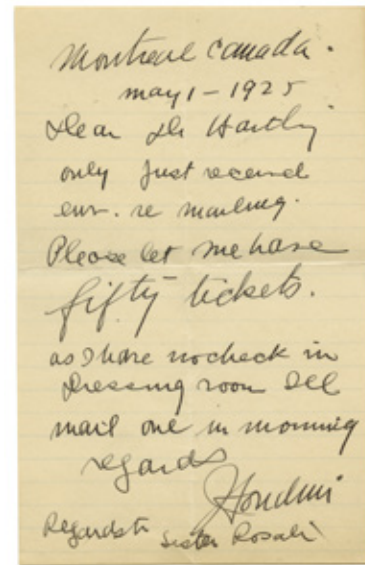 Montreal Canada.
may 1 - 1925
Dear Dr Hartley
only just received
env. re mailing.
Please let me have
fifty tickets.
as I have no check in
Dressing room Ill
mail one in morning
regards
Houdini
Regards to
Sister Rosali